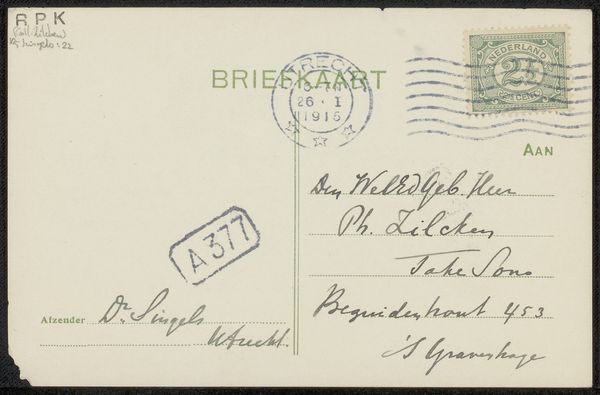 R P K
(coll. Zilcken)
Singels: 22
BRIEFKAART
UTRECHT
26 · I
1915
NEDERLAND
2½
CENT
AAN
Den WelEdGeb. Heer
Ph. Zilcken
A 377
Bezuidenhout 453
's Gravenhage
Afzender Dr. Singels
Utrecht.